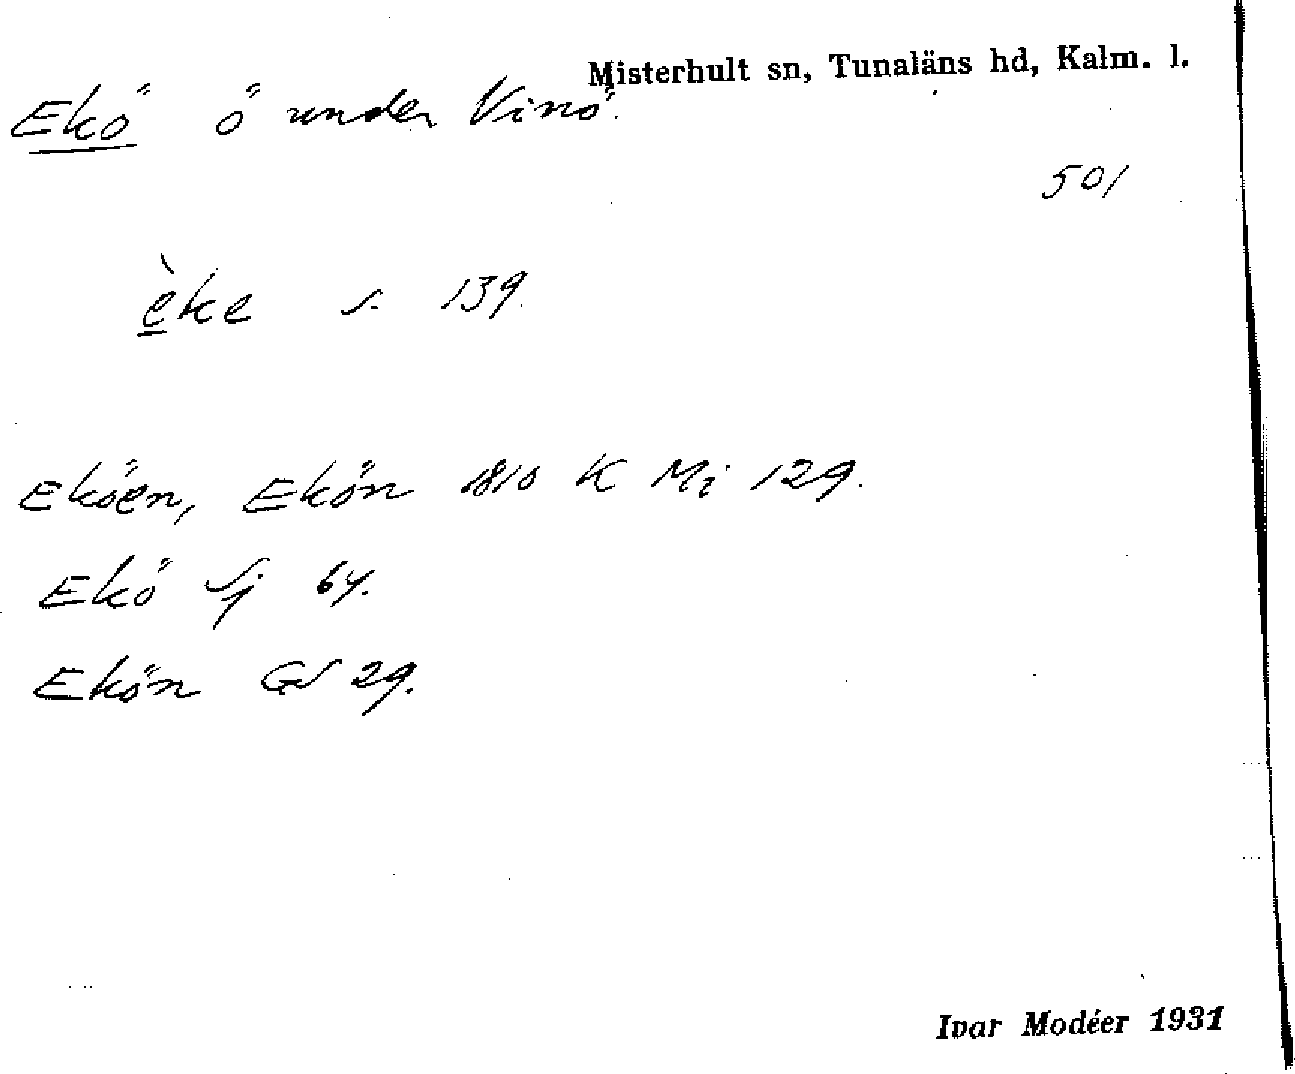 Misterhult sn, Tunaläns hd, Kalm. l.
Ekö ö under Vinö.
501
èke s. 139.
Eköen, Ekön 1810 K Mi 129.
Ekö Sj 64.
Ekön GS 29.
Ivar Modéer 1931